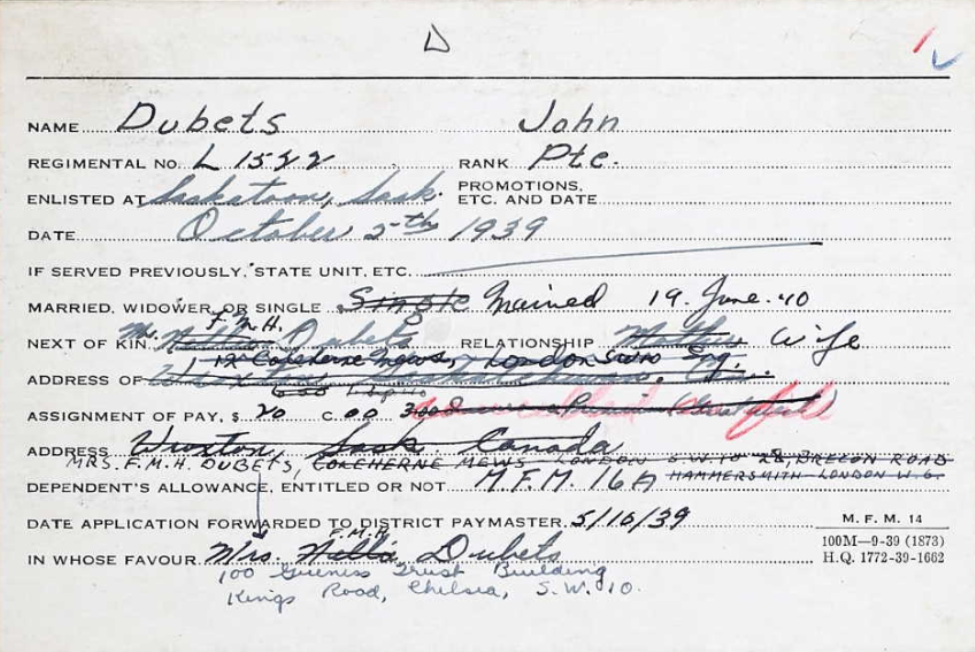 D
NAME Dubets John
REGIMENTAL NO. L 1522 RANK Pte.
ENLISTED AT Saskatoon, Sask. PROMOTIONS, ETC. AND DATE
DATE October 5th 1939
IF SERVED PREVIOUSLY, STATE UNIT, ETC.
MARRIED, WIDOWER, OR SINGLE Single Married 19. June. 40
F.M.H.
NEXT OF KIN Mrs. Dubets RELATIONSHIP Mother Wife
12 Coleherne Mews, London SW10 Eng.
ADDRESS OF Wroxton, Saskatchewan,
ASSIGNMENT OF PAY, $ 20 C. 00
ADDRESS Wroxton Sask Canada
MRS. F.M.H. DUBETS, COLEHERNE MEWS LONDON S.W.10 28, BRECON ROAD
HAMMERSMITH LONDON W.6.
DEPENDENT'S ALLOWANCE, ENTITLED OR NOT M.F.M. 16A
DATE APPLICATION FORWARDED TO DISTRICT PAYMASTER 5/10/39
F.M.H.
IN WHOSE FAVOUR Mrs. Dubets
100 Guiness Trust Building
Kings Road, Chelsea, S.W. 10.
M. F. M. 14
100M—9-39 (1873)
H.Q. 1772-39-1662